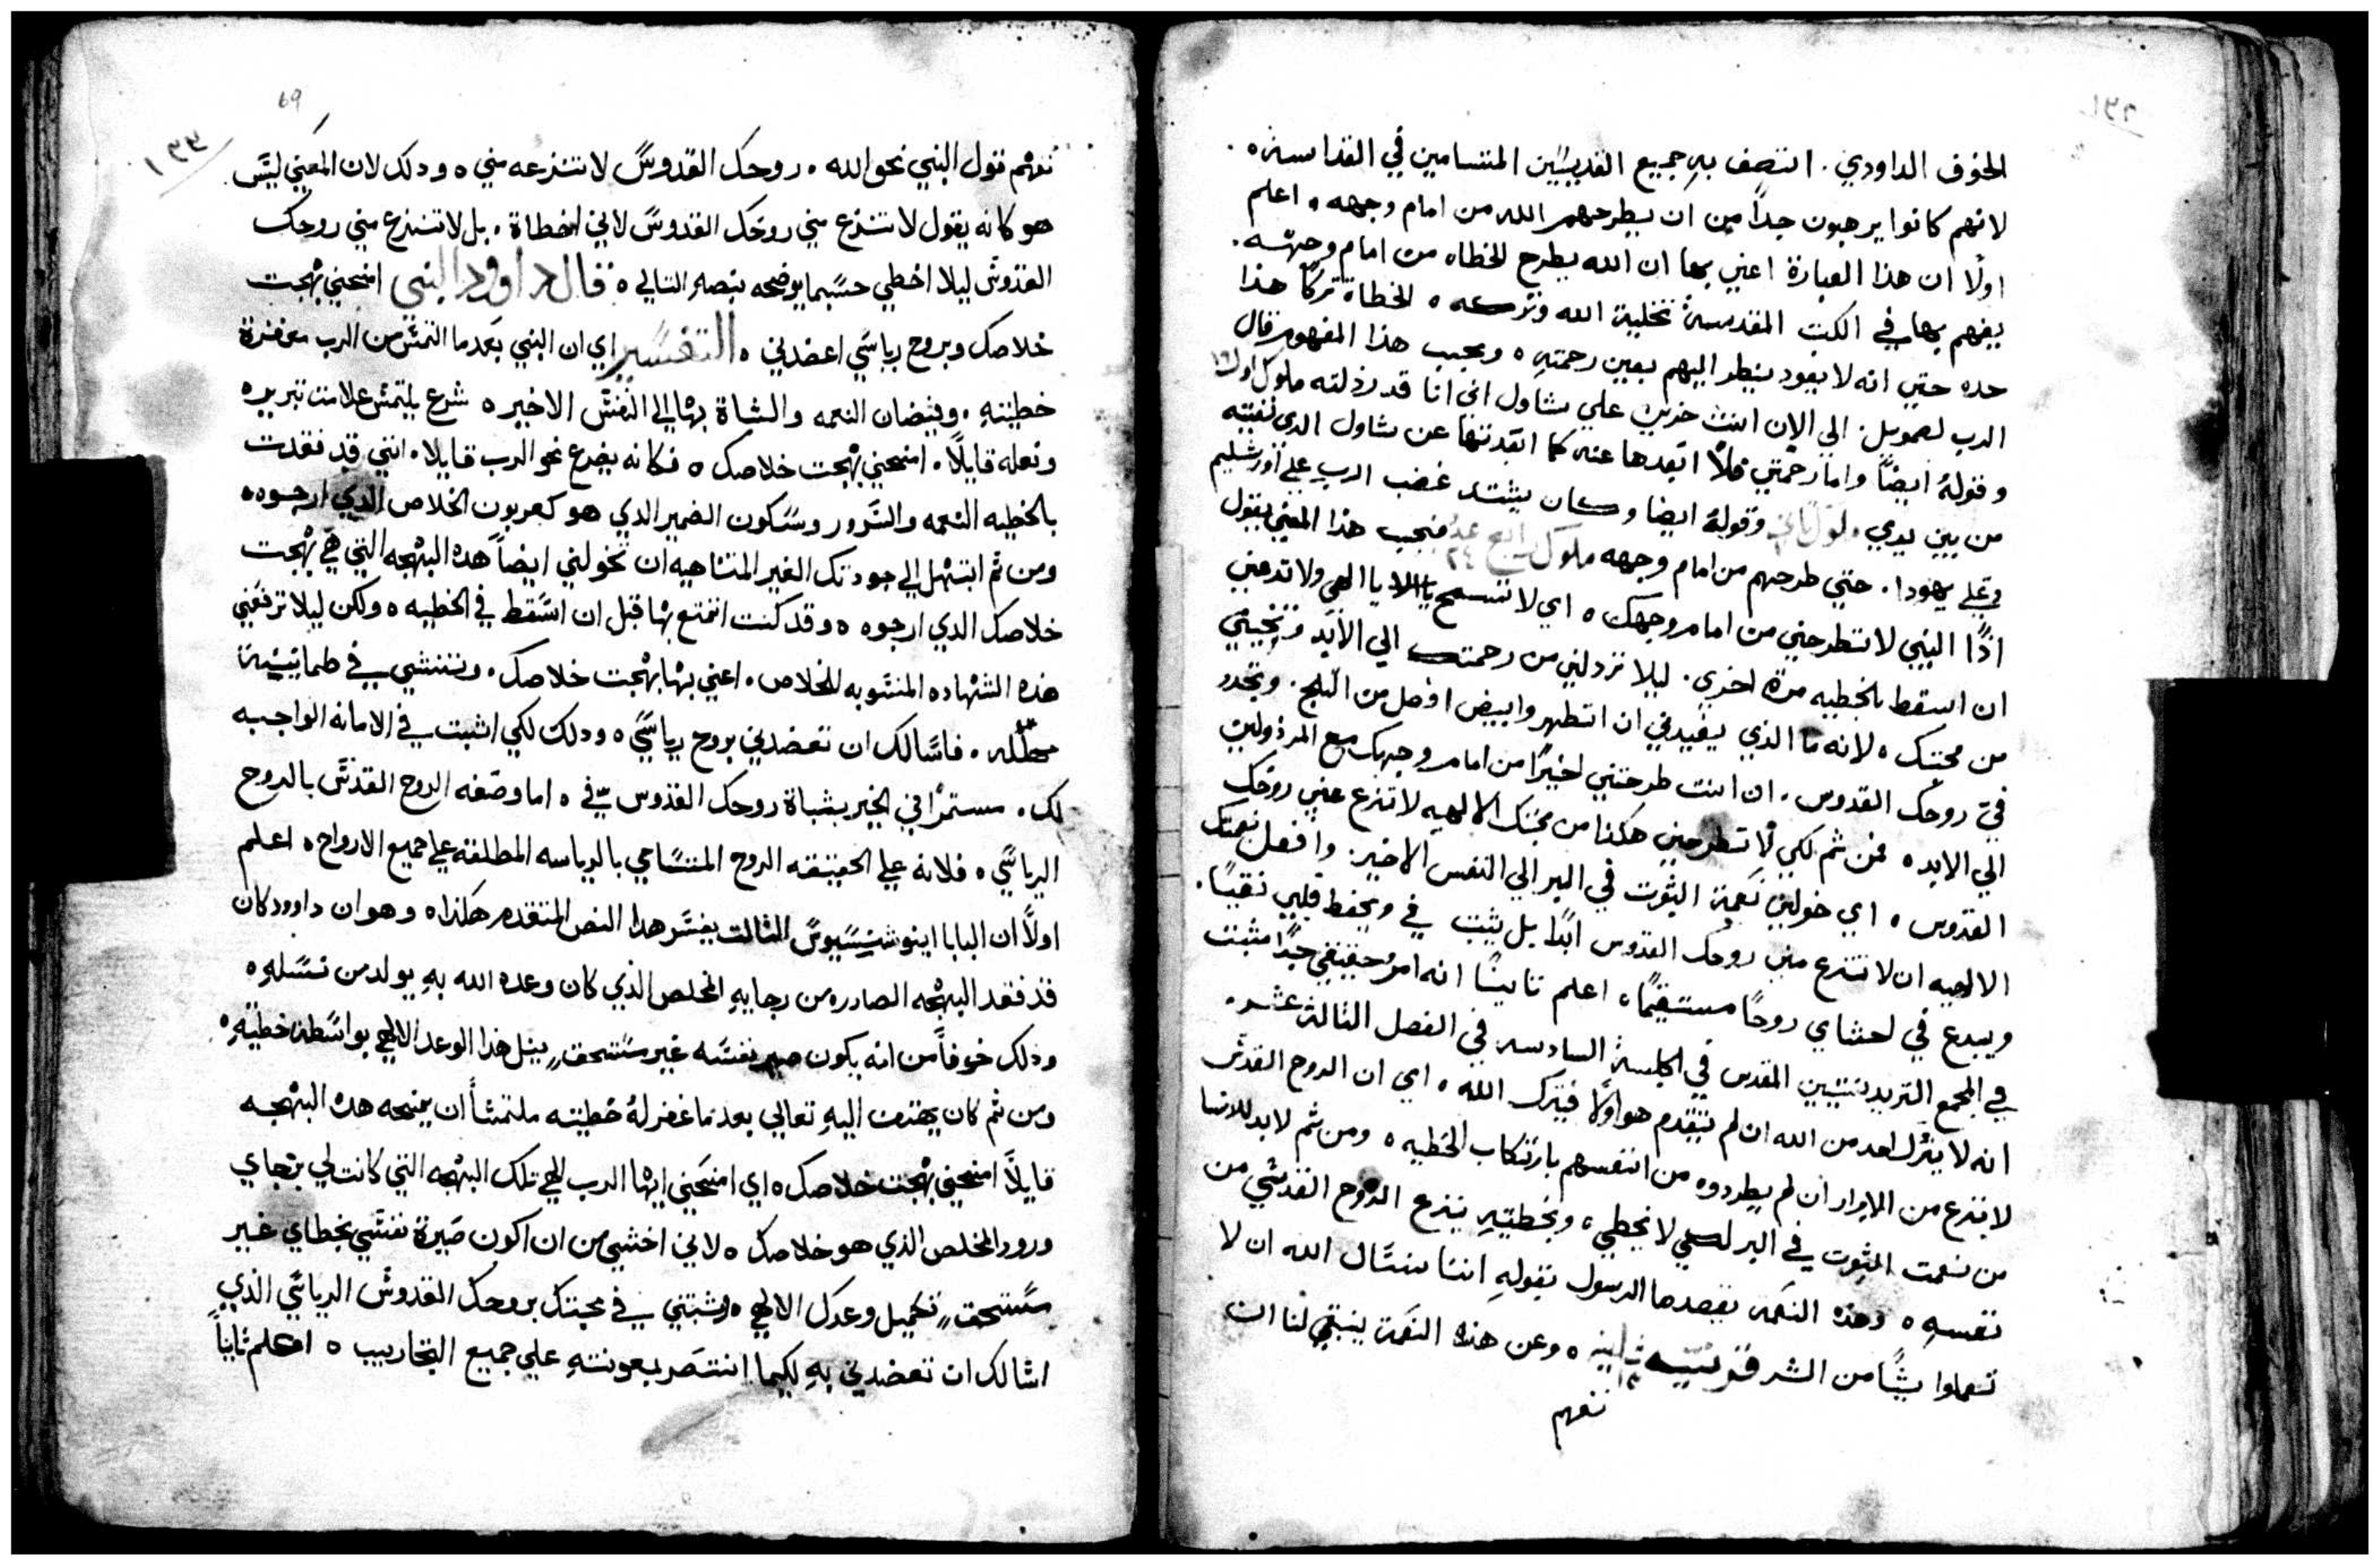 الخوف الداودي. اتصف به جميع القديسين المتسامين في القداسة ٥
لانهم كانوا يرهبون جداً من ان يطرحهم الله من امام وجهه ٥ اعلم
اولًا ان هذا العبارة اعني بها ان الله يطرح الخطاه من امام وجهه.
يفهم بها في الكتب المقدسة تخلية الله وتركه ٥ الخطاة تركًا هذا
حده حتي انه لا يعود ينظر اليهم بعين رحمته ٥ وبحسب هذا المفهوم قال
الرب لصمويل. الي الان انت حزين علي شاول اني انا قد رذلته ملوك اول ١٦
وقولهُ ايضًا واما رحمتي فلا ابعدها عنه كما ابعدتها عن شاول الدي نفيته
من بين يدي وقولهُ ايضا وكان يشتد غضب الرب علي اورشليم
وعلي يهودا. حتي طرحهم من امام وجهه ملوك رابع عد ٢٤ فبحسب هذا المعني يقول
اذًا النبي لا تطرحني من امام وجهك ٥ اي لا تسمح يا الاه يا الهي ولا تدعني
ان اسقط بالخطيه مرة اخري. ليلا تردلني من رحمتك الي الابد وتنحيني
من محبتك ٥ لانه ما الذي يفيدني ان اتطهر وابيض افضل من الثلج. وتجدد
فيّ روحك القدوس. ان انت طرحتني اخيرًا من امام وجهك مع المرذولين
الي الابد ٥ فمن ثم لكي لا تطرحني هكذا من محبتك الالهيه لا تنزع عني روحك
القدوس ٥ اي خولني نعمة الثبوت في البر الي النفس الاخير. وافعل بنعمتك
الالهيه ان لا تنتزع مني روحك القدوس ابدًا بل يثبت فيَ ويحفظ قلبي نقيًا.
ويبدع في احشاي روحًا مستقيمًا ٥ اعلم ثانيًا انه امر حقيقي جدًا مثبت
في المجمع التريدنتيني المقدس في الجلسة السادسه في الفصل الثالث عشر.
انه لا يترك احد من الله ان لم يتقدم هو اولًا فيترك الله ٥ اي ان الروح القدس
لا ينزع من الابرار ان لم يطردوه من انفسهم بارتكاب الخطيه ٥ ومن ثم لا بد للانسا
من نعمت الثبوت في البر لكي لا يخطي ٥ وبخطيته ينزع الروح القدسي من
نفسهِ ٥ وهذه النعمه يقصدها الرسول بقولهِ اننا نسال الله ان لا
تعملوا شيًا من الشر قرنتيه ثانيه ١٣ ٥ وعن هذه النعمة ينبغي لنا ان
نفهم
69
١٣٣
نفهم قول النبي نحو الله ٥ روحك القدوس لا تنتزعه مني ٥ ودلك لان المعني ليس
هو كانه يقول لا تنتزع مني روحك القدوس لاني اخطاة. بل لا تنتزع مني روحك
القدوس ليلا اخطي حسبما يوضحه بنصه التالي ٥ قال داوود النبي امنحني بهجت
خلاصك وبروح رياسي اعضدني ٥ التفسير اي ان النبي بعدما التمس من الرب مغفرة
خطيتهِ. وفيضان النعمه والشاة بها الي النفس الاخير ٥ شرع يلتمس علامت تبريره
وفعله قايلًا. امنحني بهجت خلاصك ٥ فكانه يضرع نحو الرب قايلا. انني قد فقدت
بالخطيه النعمه والسرور وسكون الضمير الدي هو كعربون الخلاص الدي ارجوه ٥
ومن ثم ابتهل الي جودتك الغير المتناهيه ان تخولني ايضاً هده البهجه التي هي بهجت
خلاصك الدي ارجوه ٥ وقد كنت اتمتع بها قبل ان اسقط في الخطيه ٥ ولكن ليلا ترفعني
هذه الشهاده المنسوبه للخلاص. اعني بها بهجت خلاصك. وتنشي في طمانينة
فاسالك ان تعضدني بروح رياسي ٥ ودلك لكي اثبت في الامانه الواجبه
لك. مستمرًا في الخير بثباة روحك القدوس فيَّ ٥ اما وصفه الروح القدس بالروح
الرياسي ٥ فلانه علي الحقيقه الروح المتسامي بالرياسه المطلقه علي جميع الارواح ٥ اعلم
اولًا ان البابا اينوشنسيوس الثالت يفسر هدا النص المتقدم هكذا ٥ وهو ان داوود كان
قد فقد البهجه الصادره من رجايهِ المخلص الذي كان وعده الله بهِ يولد من نسلهِ ٥
ودلك خوفاً من انه يكون صير نفسه غير مستحق لنيل هذا الوعد الالهي بواسطة خطيتهِ ٥
ومن ثم كان يهتف اليهِ تعالي بعدما غفر لهُ خطيته ملتمسًا ان يمنحه هده البهجه
قايلًا امنحني بهجت خلاصك ٥ اي امنحني ايها الرب الهي تلك البهجه التي كانت لي برجاي
ورود المخلص الذي هو خلاصك ٥ لاني اخشي من ان اكون صيرة نفسي بخطاي غير
مستحق لتكميل وعدك الالهي ٥ وثبتني في محبتك بروحك القدوس الرياسي الذي
اسالك ان تعضدني بهِ لكيما انتصر بمعونتهِ علي جميع التجاريب ٥ اعلم ثانياً